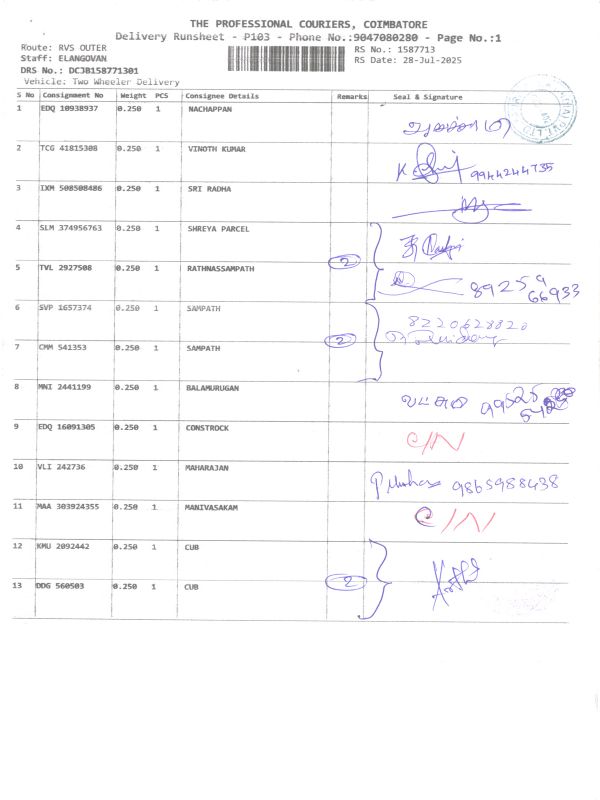 THE PROFESSIONAL COURIERS, COIMBATORE
Delivery Runsheet - P103 - Phone No.:9047080280 - Page No.:1
Route: RVS OUTER
RS No.: 1587713
Staff: ELANGOVAN
RS Date: 28-Jul-2025
DRS No.: DCJB158771301
Vehicle: Two Wheeler Delivery
S No Consignment No Weight PCS Consignee Details Remarks Seal & Signature
1 EDQ 10938937 0.250 1 NACHAPPAN
2 TCG 41815308 0.250 1 VINOTH KUMAR 9944244735
3 IXM 508508486 0.250 1 SRI RADHA
4 SLM 374956763 0.250 1 SHREYA PARCEL
2
5 TVL 2927508 0.250 1 RATHNASSAMPATH 89259
66933
6 SVP 1657374 0.250 1 SAMPATH 8220628820
2
7 CMM 541353 0.250 1 SAMPATH
8 MNI 2441199 0.250 1 BALAMURUGAN
9 EDQ 16091305 0.250 1 CONSTROCK C/N
10 VLI 242736 0.250 1 MAHARAJAN 9865988438
11 MAA 303924355 0.250 1 MANIVASAKAM C/N
12 KMU 2092442 0.250 1 CUB
13 DDG 560503 0.250 1 CUB 2